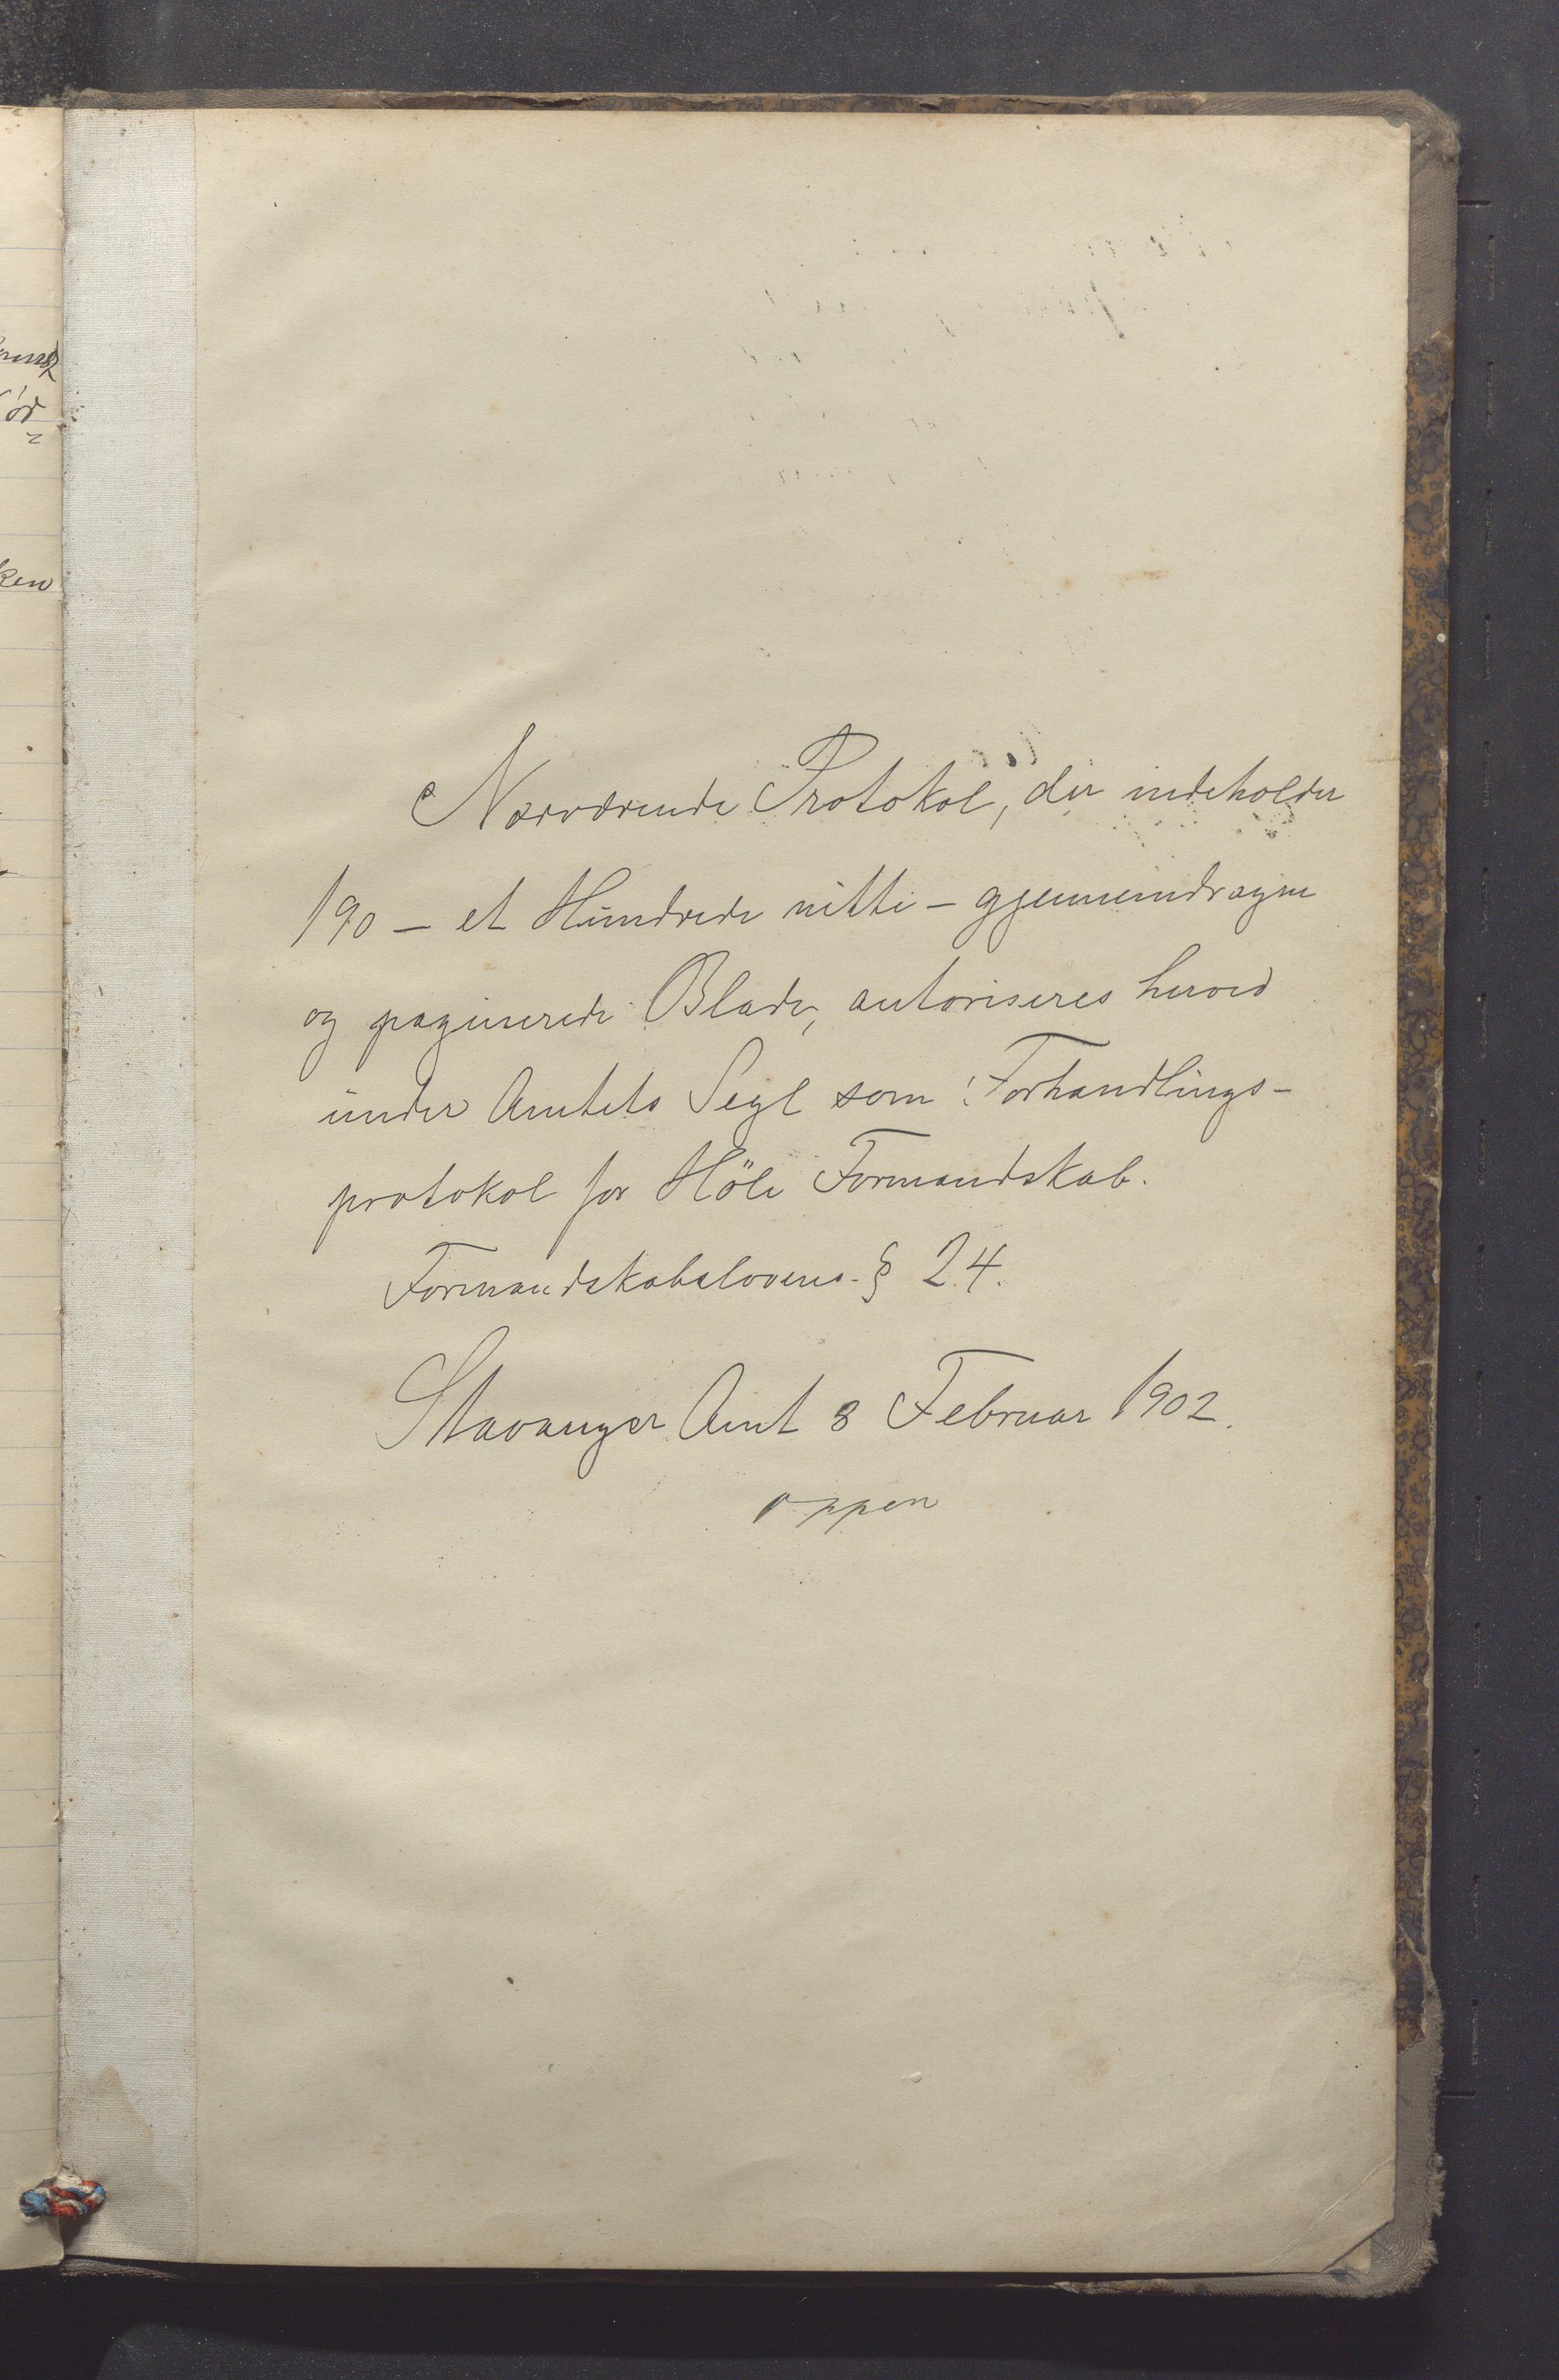 Nærværende Protokol, der indeholder
190 – et Hundrede nitti – gjennemdragne
og paginerede Blade, autoriseres herved
under Amtets Segl som Forhandlings-
protokol for Höle Formandskab.
Formandskabslovens § 24.
Stavanger Amt 8 Februar 1902.
Oppen
ken